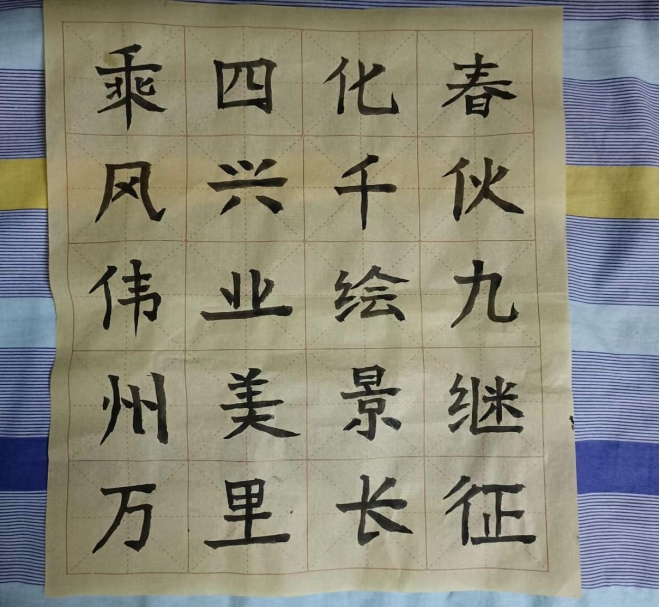 乘四化春
风兴千伙
伟业绘九
州美景继
万里长征